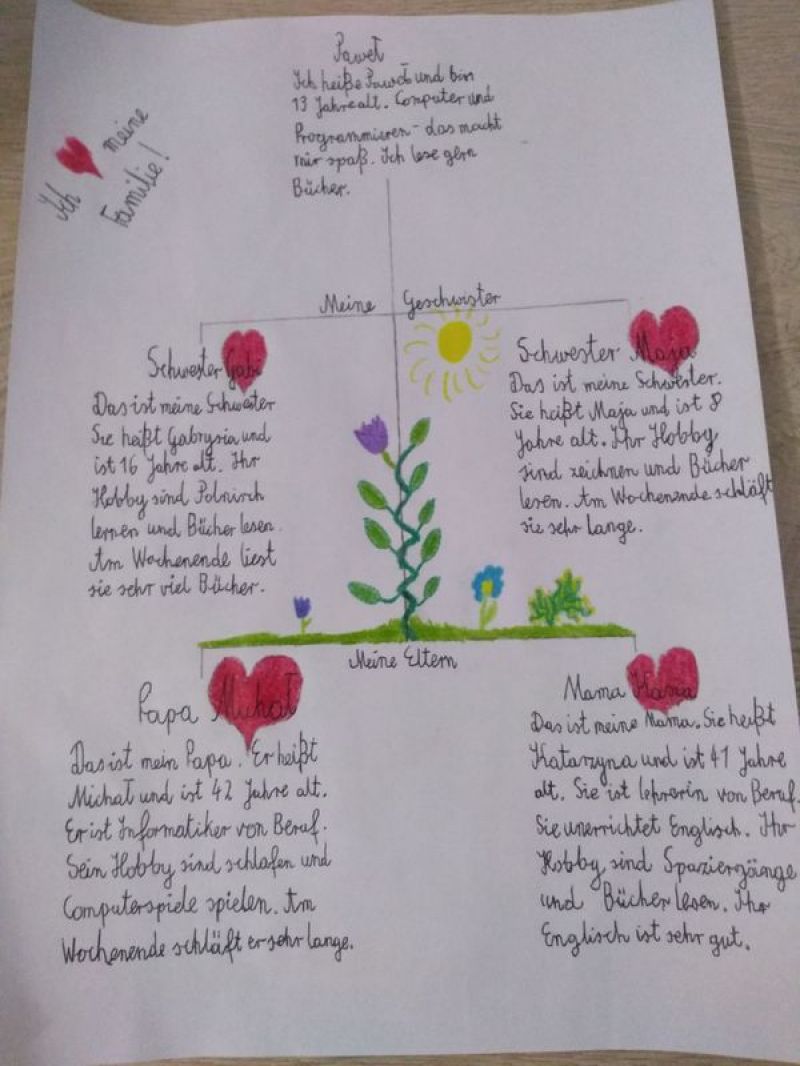 Paweł
Ich heiße Paweł und bin
13 Jahre alt. Computer und
Programmieren - das macht
mir spaß. Ich lese gern
Bücher.
Ich meine
Familie!
Meine Geschwister
Schwester Gabi
Das ist meine Schwester
Sie heißt Gabrysia und
ist 16 Jahre alt. Ihr
Hobby sind Polnisch
lernen und Bücher lesen.
Am Wochenende liest
sie sehr viel Bücher.
Schwester Maja
Das ist meine Schwester.
Sie heißt Maja und ist 8
Jahre alt. Ihr Hobby
sind zeichnen und Bücher
lesen. Am Wochenende schläft
sie sehr lange.
Meine Eltern
Papa Michał
Das ist mein Papa. Er heißt
Michał und ist 42 Jahre alt.
Er ist Informatiker von Beruf.
Sein Hobby sind schlafen und
Computerspiele spielen. Am
Wochenende schläft er sehr lange.
Mama Kasia
Das ist meine Mama. Sie heißt
Katarzyna und ist 41 Jahre
alt. Sie ist lehrerin von Beruf.
Sie unerrichtet Englisch. Ihr
Hobby sind Spaziergänge
und Bücher lesen. Ihr
Englisch ist sehr gut.